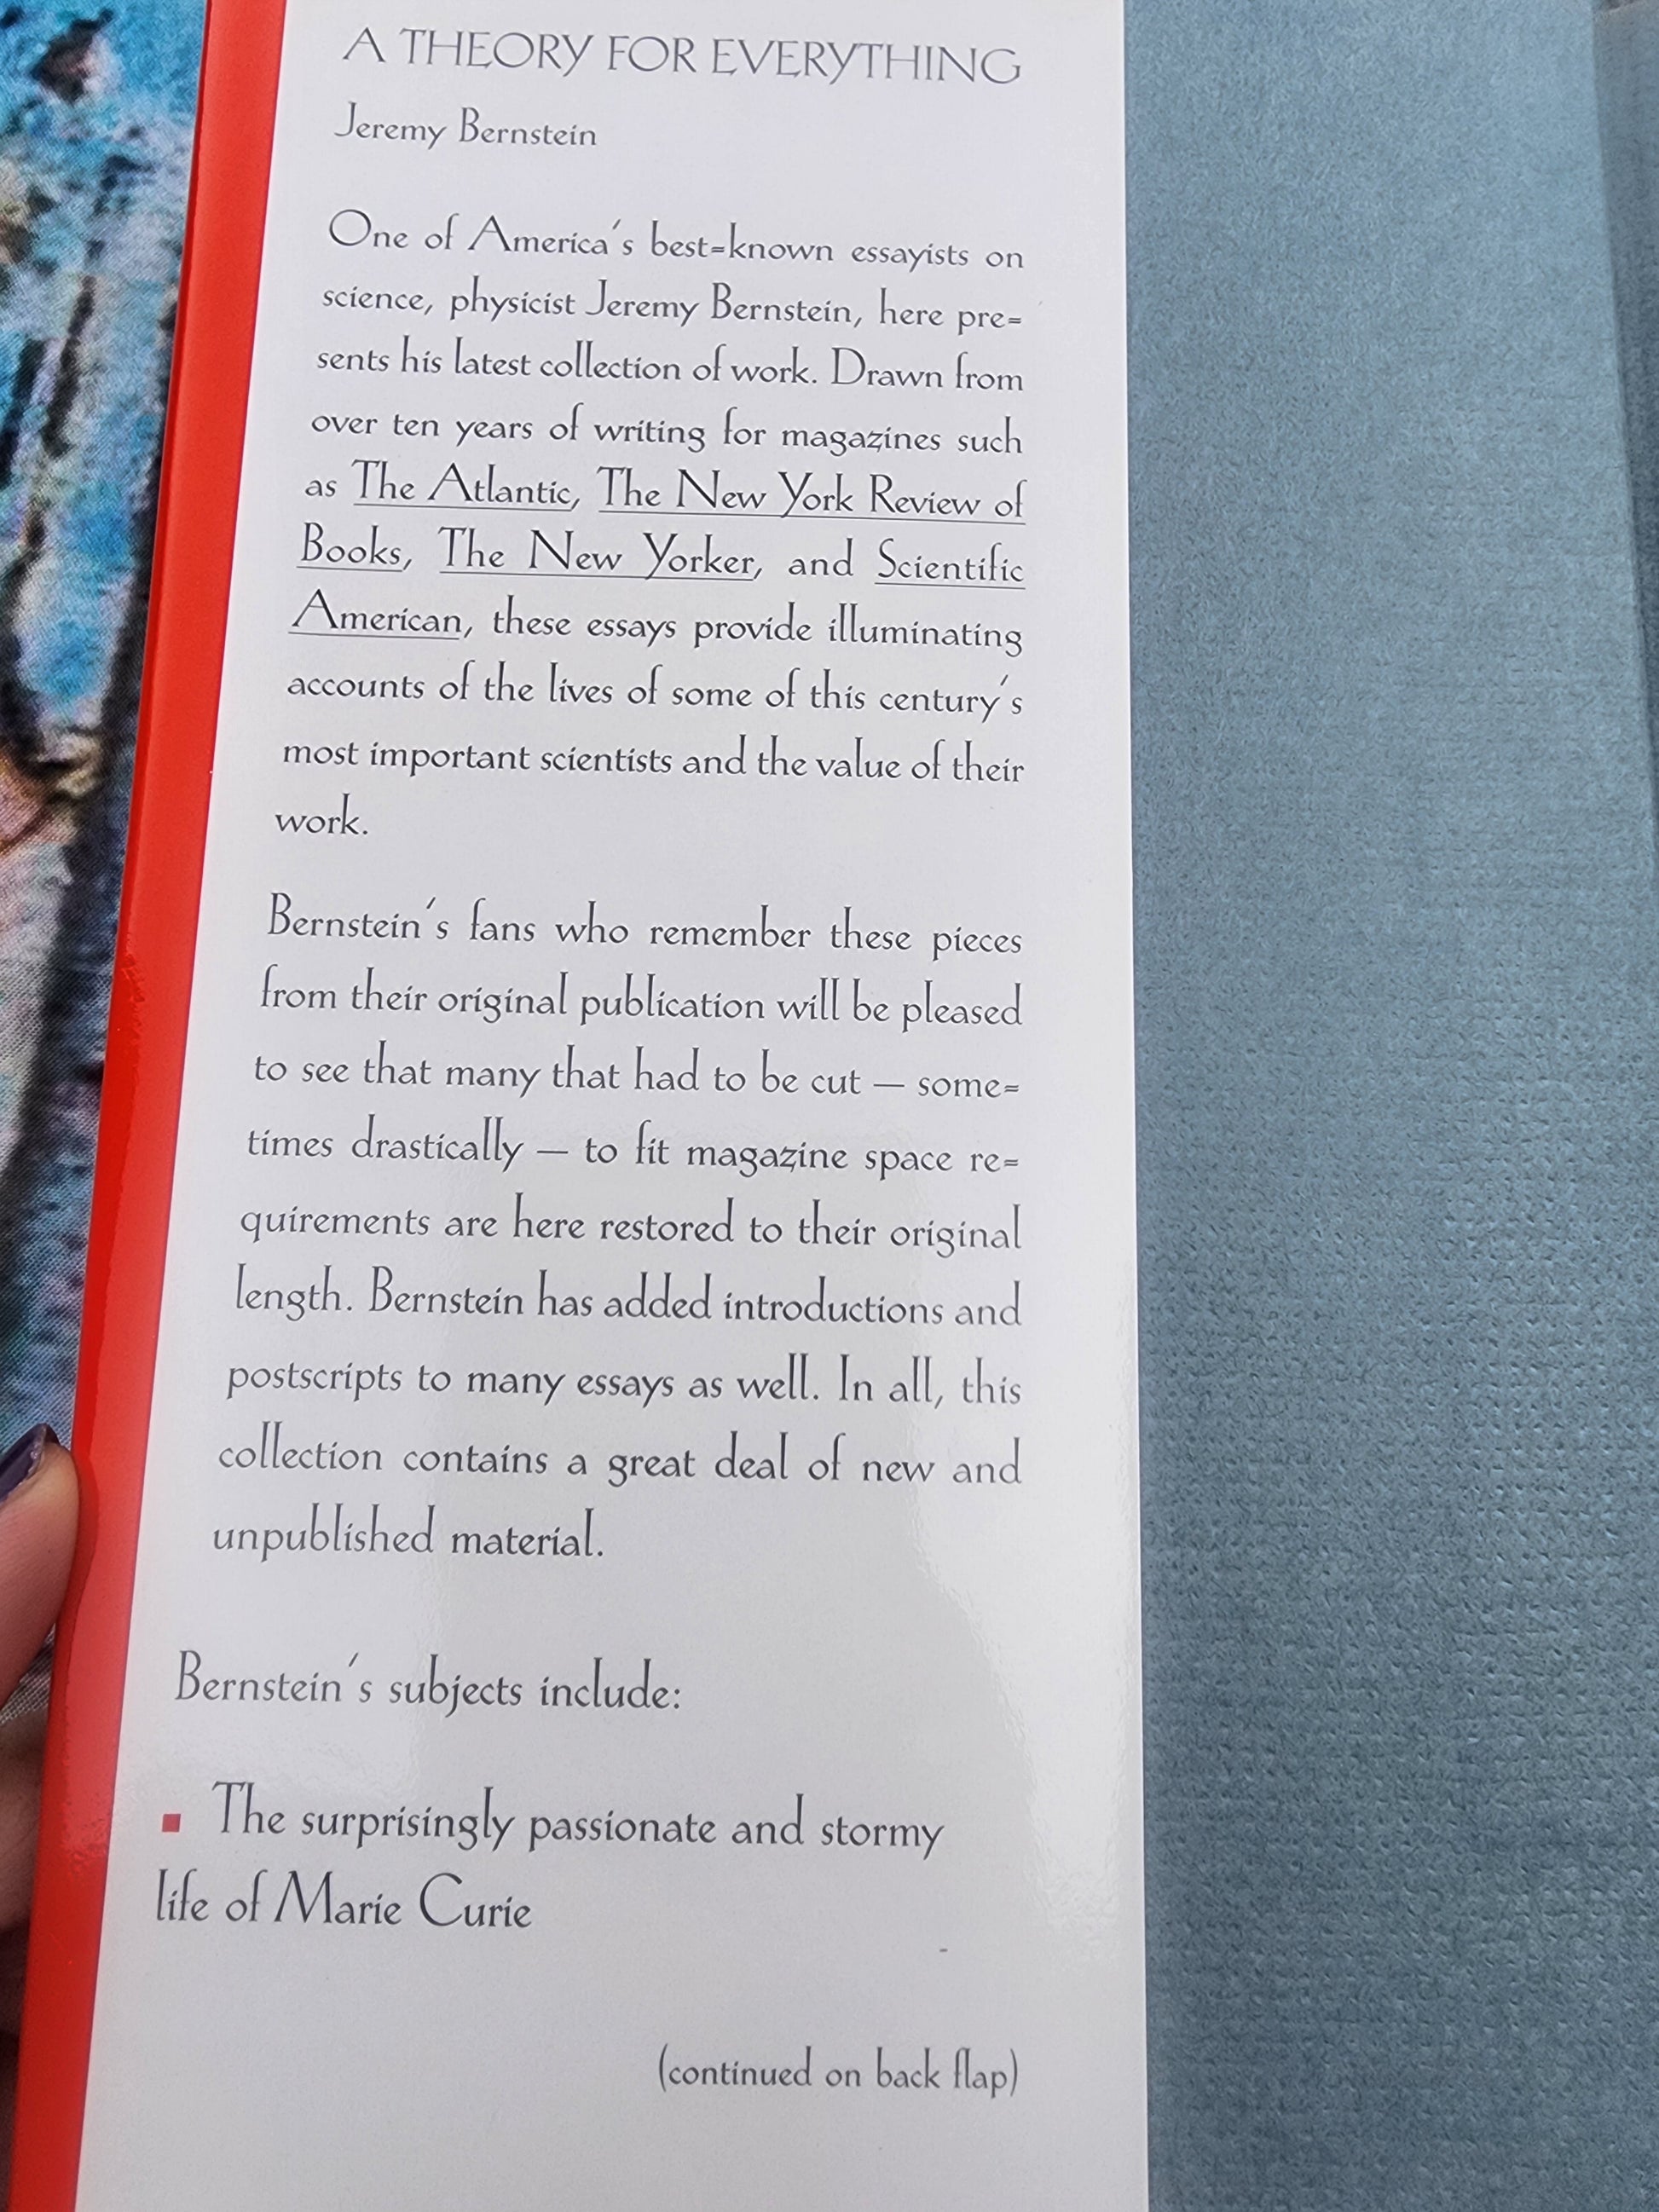 A THEORY FOR EVERYTHING
Jeremy Bernstein
One of America's best=known essayists on
science, physicist Jeremy Bernstein, here pre=
sents his latest collection of work. Drawn from
over ten years of writing for magazines such
as The Atlantic, The New York Review of
Books, The New Yorker, and Scientific
American, these essays provide illuminating
accounts of the lives of some of this century's
most important scientists and the value of their
work.
Bernstein's fans who remember these pieces
from their original publication will be pleased
to see that many that had to be cut — some=
times drastically — to fit magazine space re=
quirements are here restored to their original
length. Bernstein has added introductions and
postscripts to many essays as well. In all, this
collection contains a great deal of new and
unpublished material.
Bernstein's subjects include:
▪ The surprisingly passionate and stormy
life of Marie Curie
(continued on back flap)